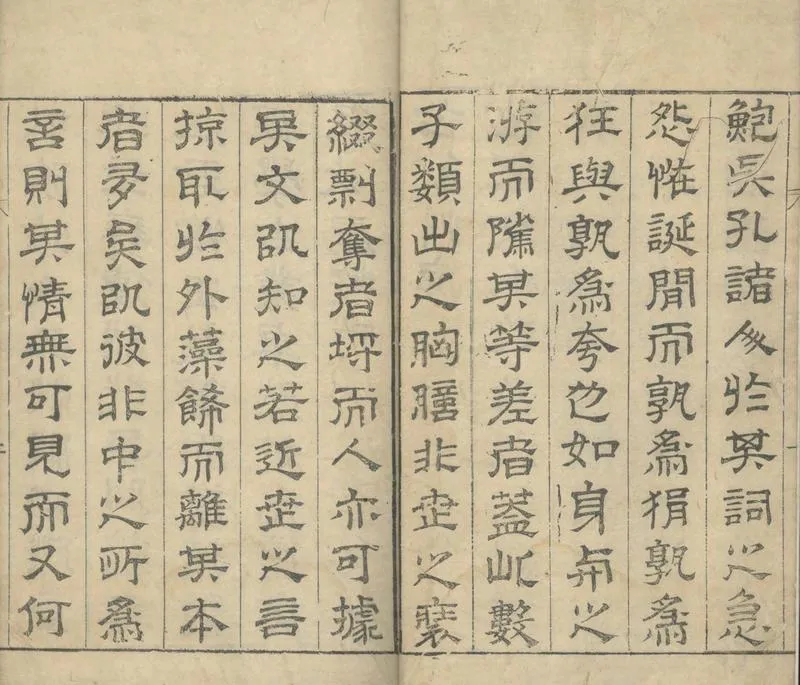 鮑吳孔諸人於其詞之急
怨恠誕間而孰為狷孰為
狂與孰為夸也如身與之
游而隲其等差者蓋此數
子類出之胸臆非世之
綴剽奪者埒而人亦可據
其文以知之若近世之言
掠取於外藻飾而離其本
者多矣以彼非中之所為
言則其情無可見而又何